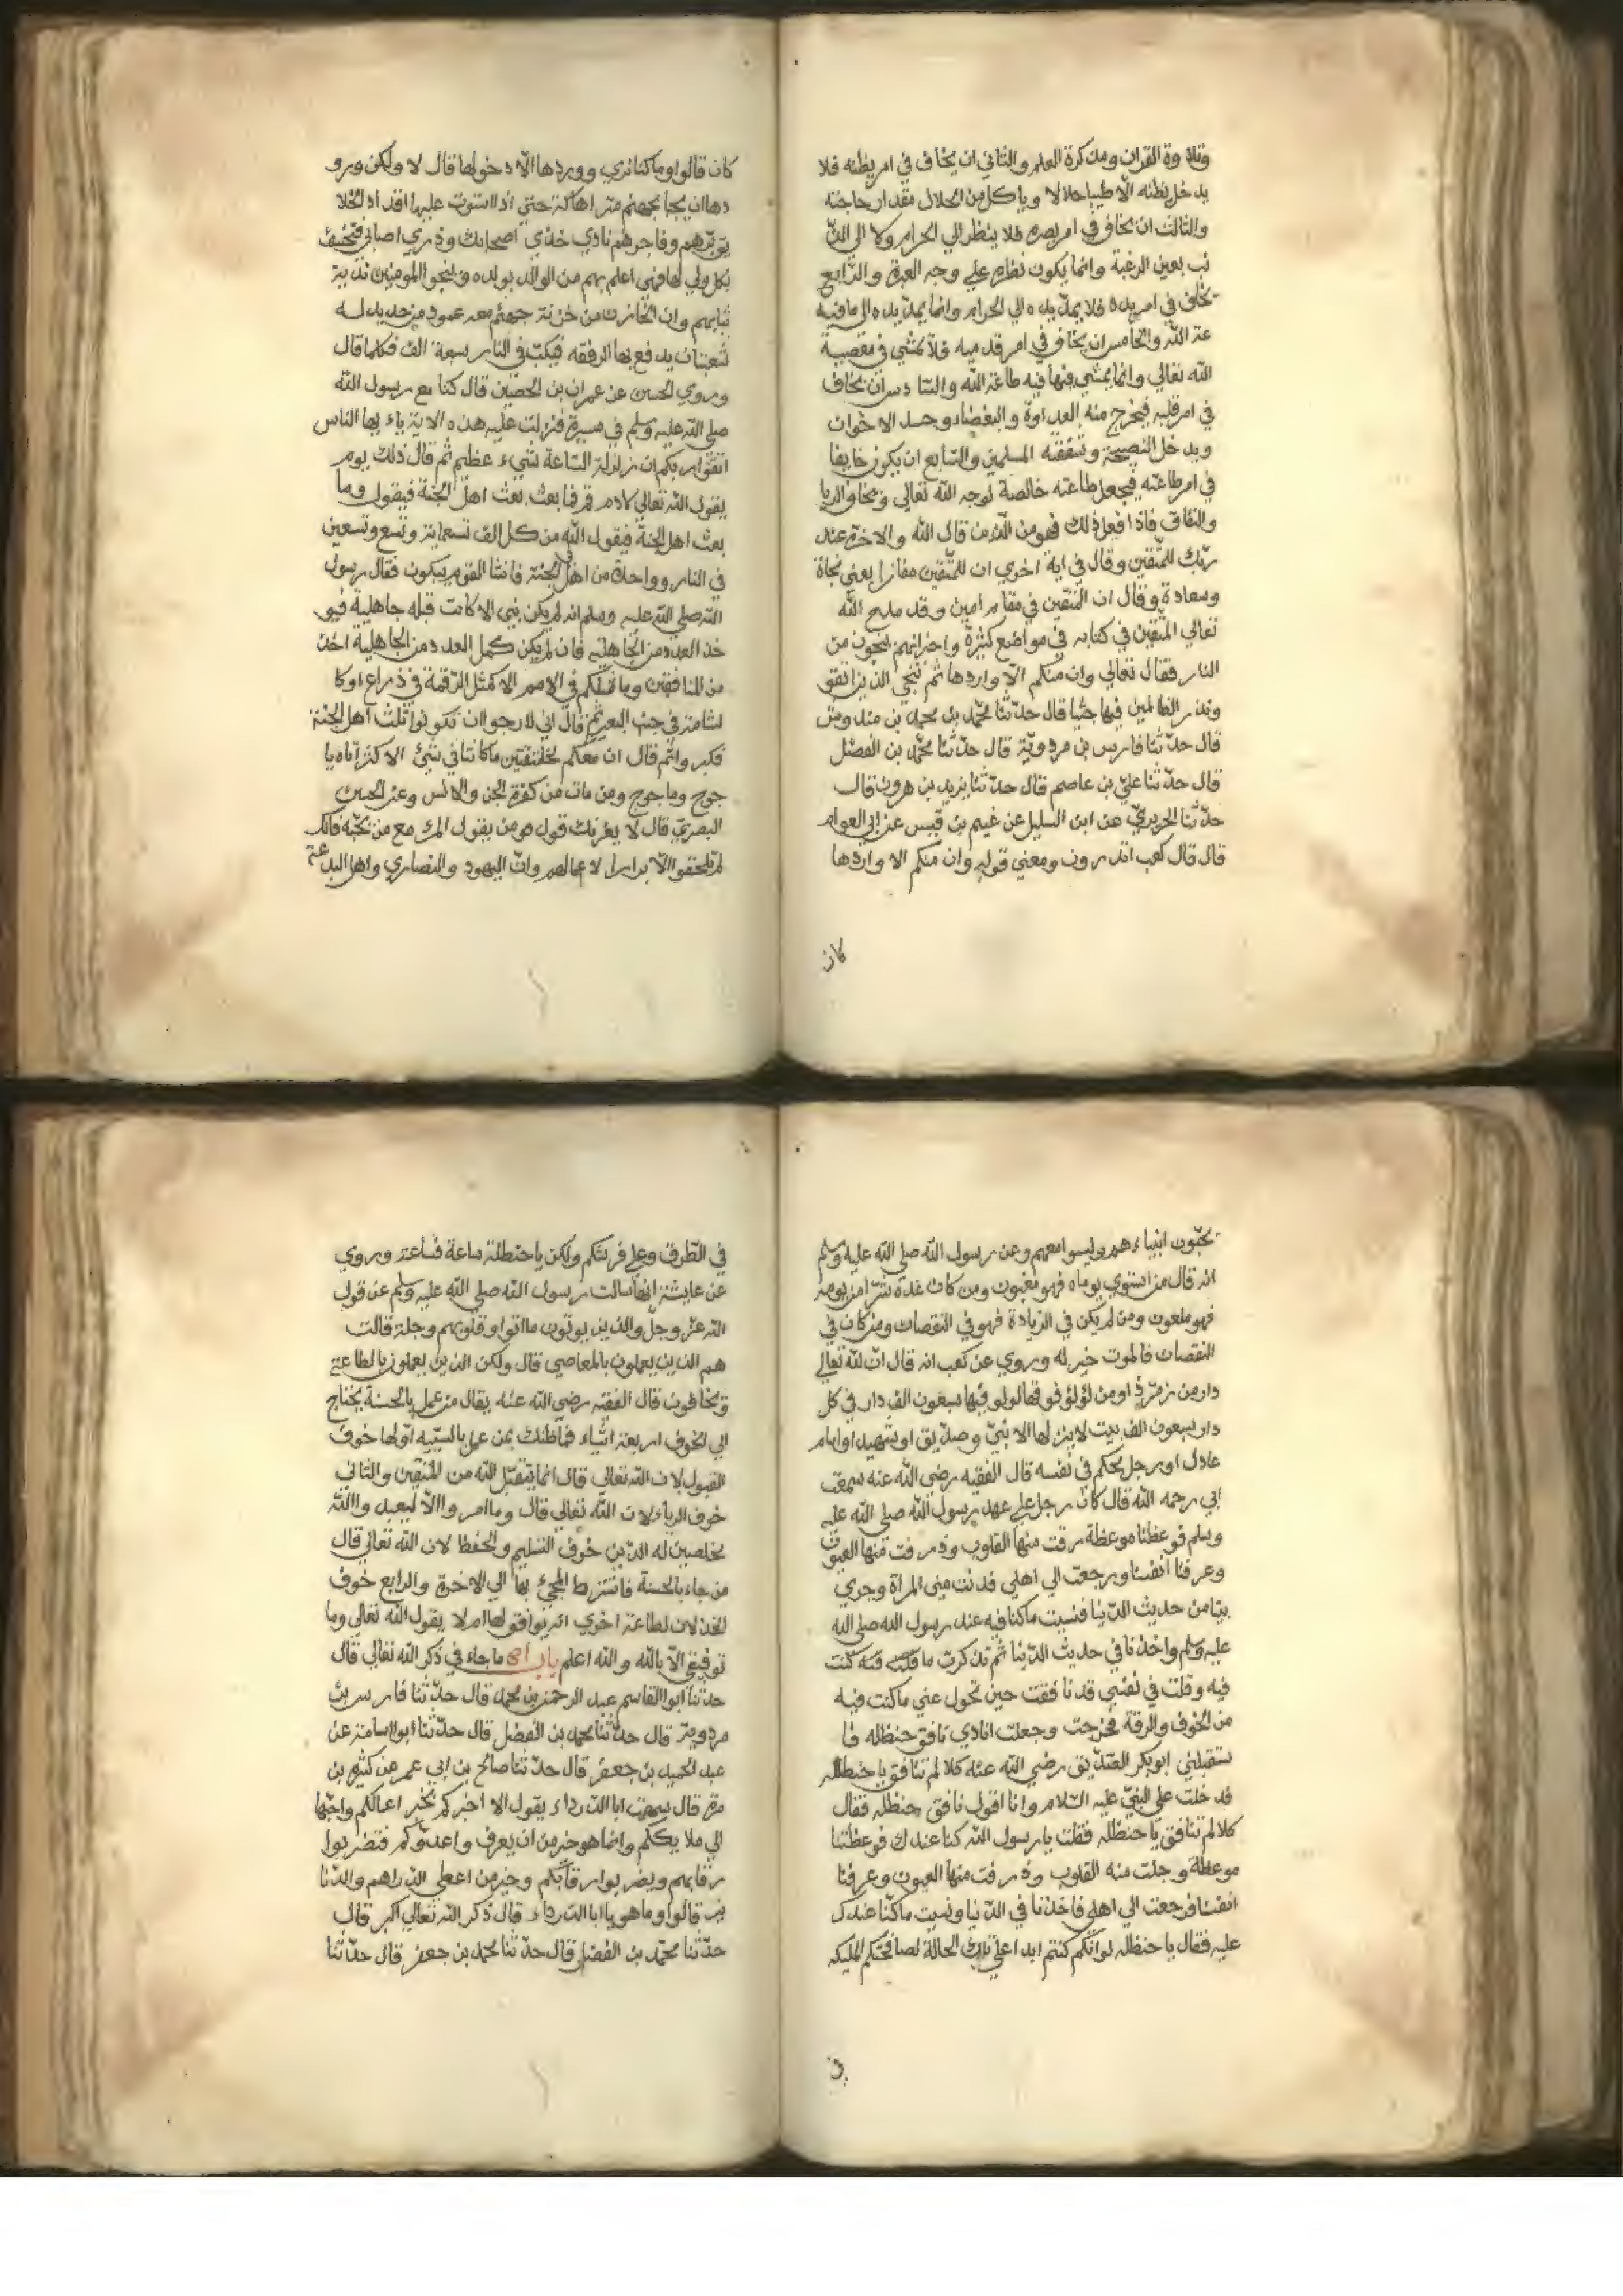 وتلاوة القران ومذكرة العلم والثاني ان يخاف في امر بطنه فلا
يدخل بطنه الا طيبا حلالا وياكل من الحلال مقدار حاجته
والثالث ان يخاف في امر بصره فلا ينظر الي الحرام ولا الي الدّ
نيا بعين الرغبة وانما يكون نظره علي وجه العبرة والرّابع
يخاف في امر يده فلا يمدّ يده الي الحرام وانما يمدّ يده الي ما فيه
عة الله والخامس ان يخاف في امر قدميه فلا يمشي في معصية
الله تعالي وانما يمشي فيها فيه طاعة الله والسّادس ان يخاف
في امر قلبه فيخرج منه العداوة والبغضاء وحسد الاخوان
ويدخل النصيحة وشفقته المسلمين والسّابع ان يكون خايفا
في امر طاعته فيجعل طاعته خالصة لوجه الله تعالي ويخاف الريا
والنفاق فاذا فعل ذلك فهو من الذين قال الله والاخرة عند
ربّك للمتّقين وقال في اية اخري ان للمتّقين مفازا يعني نجاة
وسعادة وقال ان المتّقين في مقام امين وقد مدح الله
تعالي المتّقين في كتابه في مواضع كثيرة واخبر انهم ينجون من
النار فقال تعالي وان منكم الّا واردها ثم ننجي الذين اتقو
ونذر الظالمين فيها جثيا قال حدّثنا محمّد بن محمد بن مندوش
قال حدّثنا فارس بن مردويّة قال حدّثنا محمّد بن الفضل
قال حدّثنا عليّ بن عاصم قال حدّثنا يزيد بن هرون قال
حدّثنا الجريريّ عن ابن السليل عن غيم بن قيس عن ابي العوام
قال قال كعب اتدرون ومعني قوله وان منكم الا واردها
كان
كان قالوا وما كنا نري وورودها الّا دخولها قال لا ولكن ورو
دها ان يجا بجهنم متن اهالة حتي اذا استوت عليها اقدام الخلا
يق برّهم وفاجرهم نادي خذي اصحابك وذري اصحابي فتخسف
بكل ولي لها فهي اعلم بهم من الوالد بولده وينجو المومنين ندية
ثيابهم وان الخازن من خزنة جهنم معه عمود من حديد له
شعبتان يدفع بها الدفعة فيكبّ في النار سبعة الف فكلما قال
وروي الحسن عن عمران بن الحصين قال كنا مع رسول الله
صلي الله عليه وسلم في مسيرة فنزلت عليه هذه الاية ياء يها الناس
اتقوا ربكم ان زلزلة السّاعة شيء عظيم ثم قال ذلك يوم
يقول الله تعالي لادم قم فابعث بعث اهل الجنة فيقول وما
بعث اهل الجنة فيقول الله من كل الف تسعماية وتسع وتسعين
في النار وواحدة من اهل الجنة فانشا القوم يبكون فقال رسول
الله صلي الله عليه وسلم انه لم يكن نبي الا كانت قبله جاهلية فيو
خذ العدد من الجاهلية فان لم يكن كمل العدد من الجاهلية اخذ
من المنافقين وما مثلكم في الامم الا كمثل الرّقمة في ذراع اوكا
لشامة في جنب البعير ثم قال اني لارجوا ان تكونوا ثلث اهل الجنة
فكبروا ثم قال ان معكم لخلتقتين ما كانتا في شيئ الا كثرتاه يا
جوج وماجوج ومن مات من كفرة الجن والانس وعن الحسن
البصريّ قال لا يغرنك قول من يقول المرء مع من يحبّه فانك
لم تلحقوا الابرار الا باعمالهم وانّ اليهود والنصاري واهل البدعة
يحبّون انبياءهم وليسوا معهم وعن رسول الله صلي الله عليه وسلم
انه قال من استوي يوماه فهو مغبون ومن كان غده شرّا من يومه
فهو ملعون ومن لم يكن في الزيادة فهو في النقصان ومن كان في
النقصان فالموت خير له وروي عن كعب انه قال ان لله تعالي
دار من زمرّد او من لؤلؤ فوقها لولو فيها سبعون الف دار في كل
دار سبعون الف بيت لا ينزلها الا نبيّ وصدّيق او شهيد او امام
عادل او رجل يحكم في نفسه قال الفقيه رضي الله عنه سمعت
ابي رحمه الله قال كان رجل علي عهد رسول الله صلي الله عليه
وسلم فوعظنا موعظة رقت منها القلوب وذرفت منها العيون
وعرفنا انفسنا ورجعت الي اهلي فدنت مني المرأة وجري
بيتا من حديث الدّنيا فنسيت ما كنا فيه عند رسول الله صلي الله
عليه وسلم واخذنا في حديث الدّنيا ثم تذكرت ما قلت فيه كنت
فيه وقلت في نفسي قد نافقت حين تحول عني ما كنت فيه
من الخوف والرقة فخرجت وجعلت انادي نافق حنظله فا
ستقبلني ابو بكر الصّدّيق رضي الله عنه كلا لم تنافق يا حنظله
فدخلت علي النبيّ عليه السّلام وانا اقول نافق حنظله فقال
كلا لم تنافق يا حنظله فقلت يا رسول الله كنا عندك فوعظتنا
موعظة وجلت منه القلوب وذرفت منها العيون وعرفنا
انفسنا فرجعت الي اهلي فاخذنا في الدّنيا ونسيت ما كنّا عندك
عليه فقال يا حنظله لو انّكم كنتم ابدا علي تلك الحالة لصافحتكم المليكه
في
في الطّرق وعلي فرشكم ولكن يا حنظلة ساعة فساعة وروي
عن عايشة انها سالت رسول الله صلي الله عليه وسلم عن قول
الله عزّ وجلّ والذين يوتون ما اتوا وقلوبهم وجلة قالت
هم الذين يعملون بالمعاصي قال ولكن الذين يعملون بالطاعة
ويخافون قال الفقيه رضي الله عنه يقال من عمل بالحسنة يحتاج
الي الخوف اربعة اشياء فما ظنك بمن عمل بالسّيّيه اوّلها خوف
القبول لان الله تعالي قال انما يتقبّل الله من المتقين والثاني
خوف الرياء لان الله تعالي قال وما امروا الّا ليعبدوا الله
مخلصين له الدّين خوف التسليم والحفظ لان الله تعالي قال
من جاء بالحسنة فاشترط المجيّ بها الي الاخرة والرابع خوف
الخذلان لطاعة اخري انه يوافق لها ام لا يقول الله تعالي وما
توفيقي الّا بالله والله اعلم باب ما جاء في ذكر الله تعالي قال
حدثنا ابو القاسم عبد الرحمن بن محمد قال حدّثنا فارس بن
مردوية قال حدّثنا محمد بن الفضل قال حدّثنا ابو اسامة عن
عبد الحميد بن جعفر قال حدّثنا صالح بن ابي عمر عن كثير بن
مرة قال سمعت ابا الدّرداء يقول الا اخبركم بخير اعمالكم واحبّها
الي مليككم وانما هو خير من ان يعرف واعدوّكم فتضربوا
رقابهم ويضربوا رقابكم وخير من اعطي الدّراهم والدّنا
نير قالوا وما هو يا ابا الدّرداء قال ذكر الله تعالي اكبر قال
حدّثنا محمّد بن الفضل قال حدّثنا محمد بن جعفر قال حدّثنا